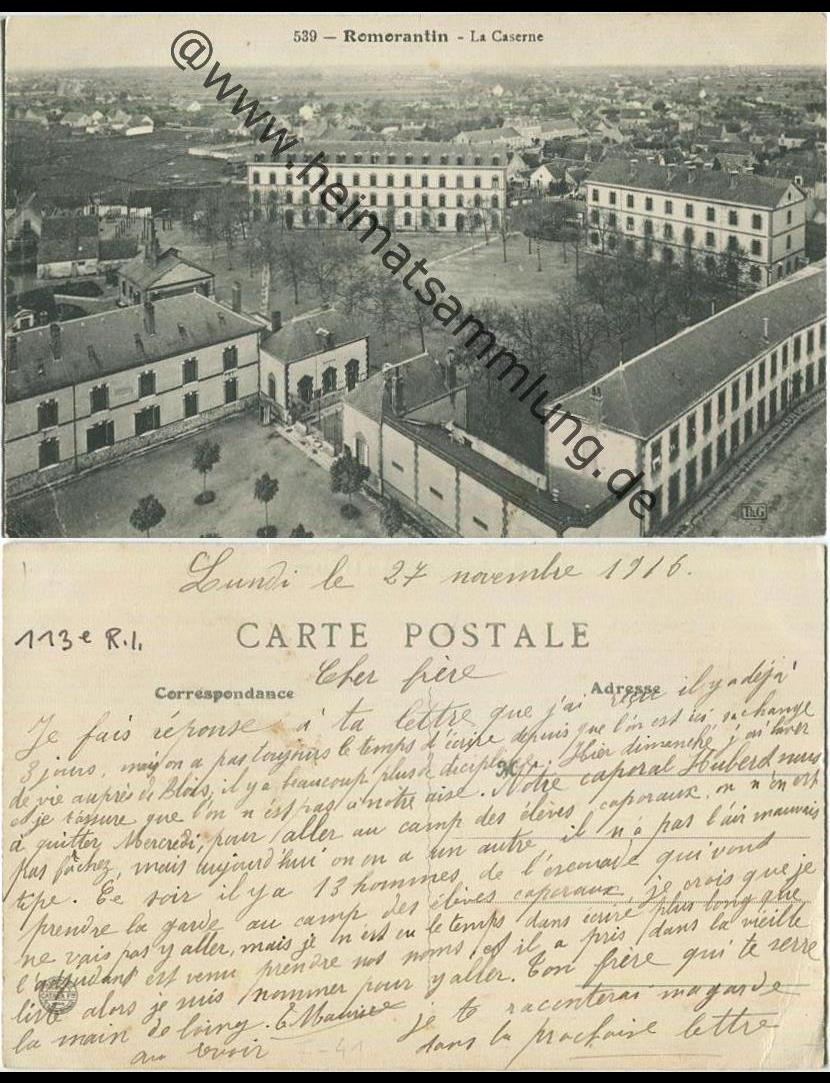 539 — Romorantin - La Caserne
@www.heimatsammlung.de
B&G
Lundi le 27 novembre 1916.
113e R.I.
CARTE POSTALE
Correspondance
Adresse
Cher frère
Je fais réponse à ta lettre que j'ai reçu il y a déjà
3 jours, mais on a pas toujours le temps d'écrire depuis que l'on est ici, sa change
de vie auprès de Blois, il y a beaucoup plus de discipline. Hier dimanche j'ai laver
et je t'assure que l'on n'est pas à notre aise. Notre caporal Huberd nous
à quitter Mercredi, pour aller au camp des élèves caporaux, on n'en est
pas fâchez, mais aujourd'hui on en a un autre il n'a pas l'air mauvais
type. Ce soir il y a 13 hommes de l'escouade qui vont
prendre la garde au camp des élèves caporaux, je crois que je
ne vais pas y aller, mais je n'est eu le temps dans écrire plus long que
l'adjudant est venu prendre nos noms, et il a pris dans la vieille
liste alors je suis nommer pour y aller. Ton frère qui te serre
la main de loing. Maurice
au revoir
Je te raconterai ma garde
dans la prochaine lettre